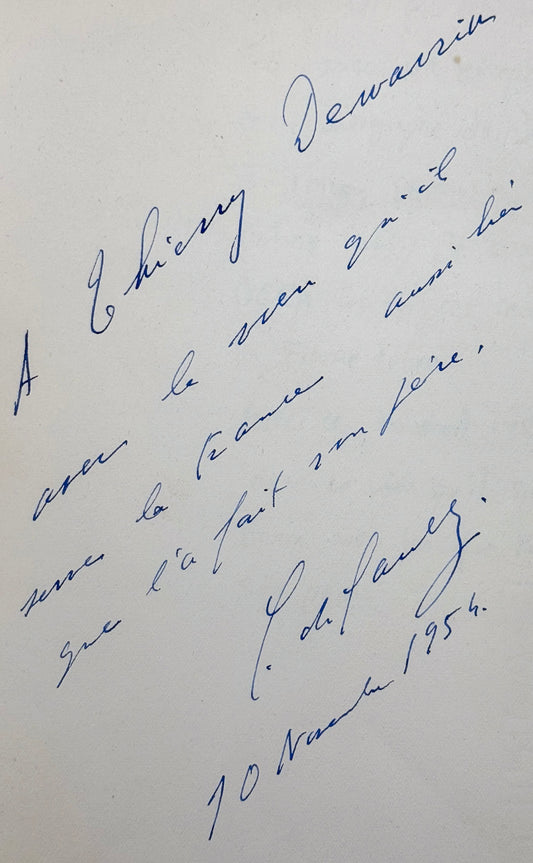 A Thierry Dewavrin
avec le voeu qu'il
serve la France aussi bien
que l'a fait son père.
C. de Gaulle.
10 Novembre 1954.